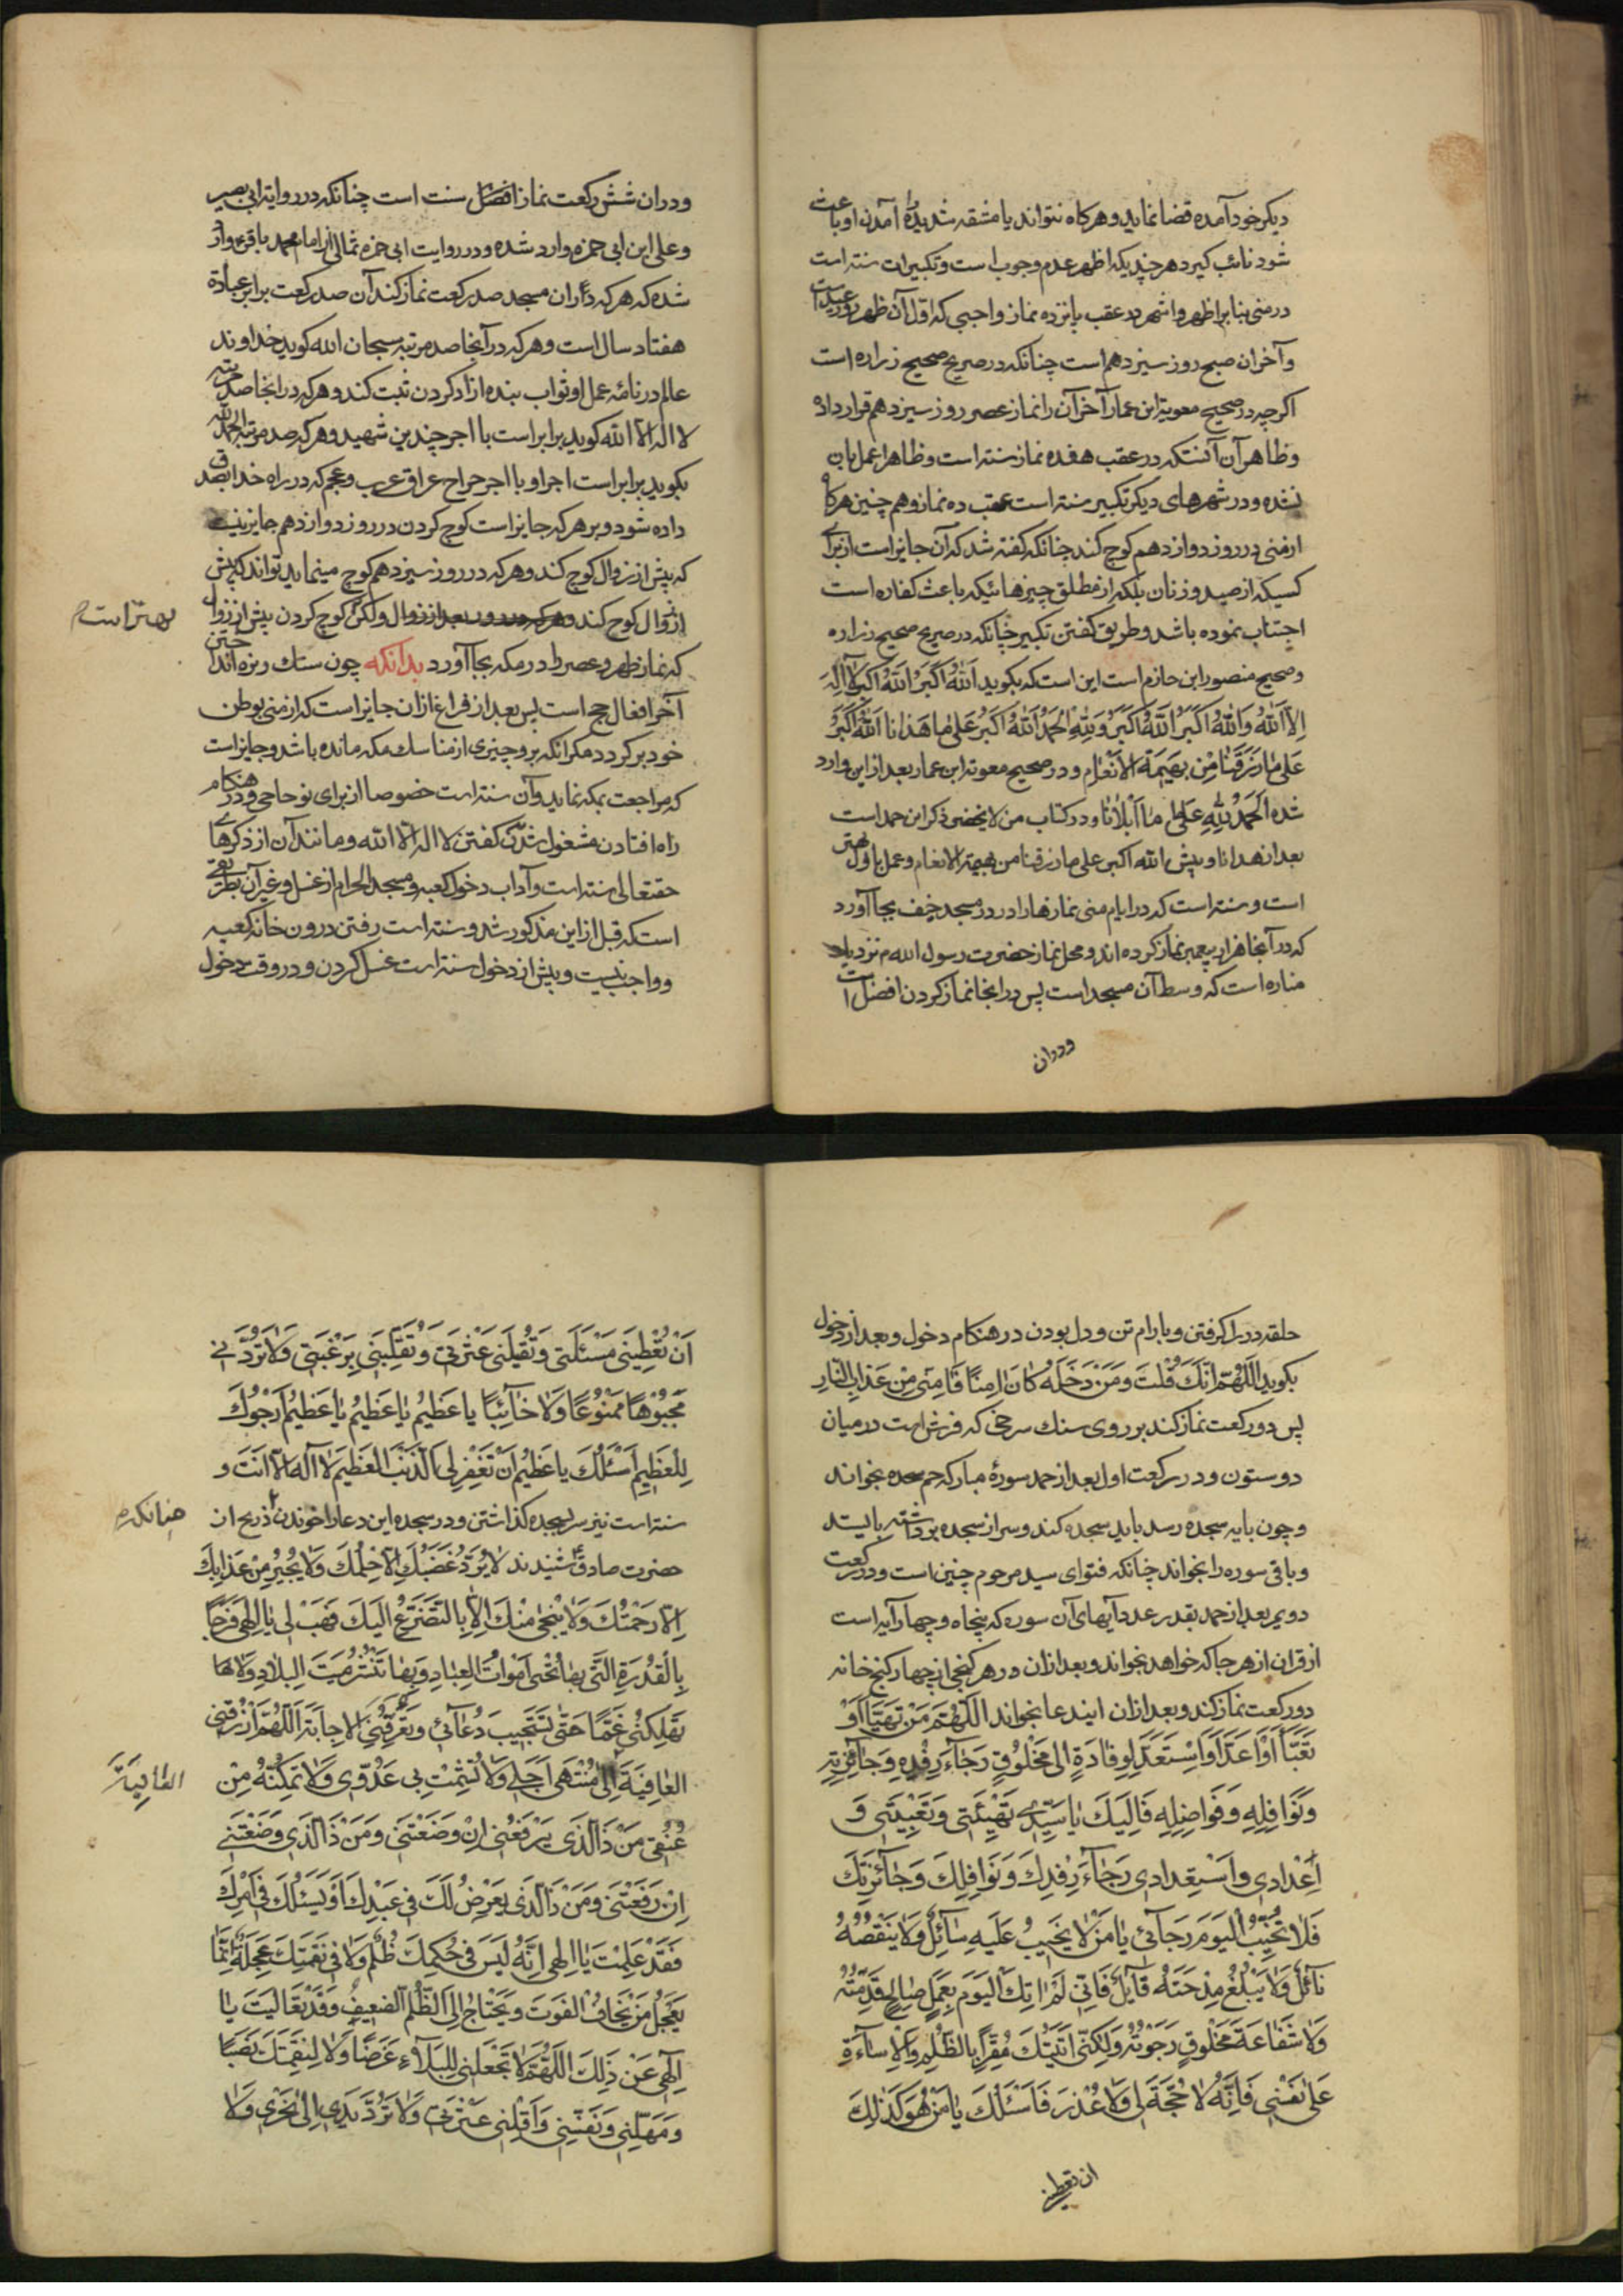 دیکر خود آمده قضا نماید و هرکاه نتواند یا مشقه شدیده آمدن او را باعث
شود نائب کیرد هرچند یکه اظهر عدم وجوب است و تکبیرات سنته است
در منی بنا بر اظهر و اشهر در عقب پانزده نماز واجبی که اول آن ظهر روز عید است
و آخر ان صبح روز سیزدهم است چنانکه در صریح صحیح زراره است
اکرچه در صحیح معویة ابن عمار آخر آن را نماز عصر روز سیزدهم قرار داده
و ظاهر آن آنستکه در عقب هفده نماز سنته است و ظاهرا عمل بان
نشده و در شهرهای دیکر تکبیر سنته است عقب ده نماز و هم چنین هرکاه
از منی در روز دوازدهم کوچ کند چنانکه کفته شد که آن جایز است از برای
کسیکه از صید و زنان بلکه از مطلق چیزهائیکه باعث کفاره است
اجتناب نموده باشد و طریق کفتن تکبیر چنانکه در صریح صحیح زراره
و صحیح منصور ابن حازم است این است که بکوید اَللّٰهُ اَکْبَرُ اَللّٰهُ اَکْبَرُ لاٰ اِلٰهَ
اِلاَّ اللّٰهُ وَاللّٰهُ اَکْبَرُ اَللّٰهُ اَکْبَرُ وَلِلّٰهِ الحَمْدُ اَللّٰهُ اَکْبَرُ عَلیٰ مٰا هَدٰانا اَللّٰهُ اَکْبَرُ
عَلیٰ مٰا رَزَقَنٰا مِنْ بَهیمَةِ الاَنْعٰامِ و در صحیح معویه ابن عمار بعد از این وارد
شده اَلحَمْدُ لِلّٰهِ عَلیٰ مٰا اَبْلاٰنٰا و در کتاب من لا یحضر ذکر این حمد است
بعد از هدانا و پیش الله اکبر علی ما رزقنا من بهیمة الانعام و عمل باول بهتر
است و سنته است که در ایام منی نمازها را در مسجد خیف بجا آورد
که در آنجا هزار پیغمبر نماز کرده اند و محل نماز حضرت رسول الله ص نزدیک
مناره است که وسط آن مسجد است پس در انجا نماز کردن افضل است
و دران
و دران شش رکعت نماز افضل سنت است چنانکه در روایة ابی بصیر
و علی ابن ابی حمزه وارد شده و در روایت ابی حمزه ثمالی از امام محمد باقر ع وارد
شده که هر که در ان مسجد صد رکعت نماز کند آن صد رکعت برابر عبادة
هفتاد سال است و هر که در آنجا صد مرتبه سبحان الله کوید خداوند
عالم در نامۀ عمل او ثواب بنده ازاد کردن ثبت کند و هر که در انجا صد مرتبه
لا اله الا الله کوید برابر است با اجر چندین شهید و هر که صد مرتبه الحمد لله
بکوید برابر است اجر او با اجر خراج عراق عرب و عجم که در راه خدا بصدق
داده شود و بر هر که جایز است کوچ کردن در روز دوازدهم جایز نیست
که پیش از زوال کوچ کند و هر که در روز سیزدهم کوچ مینماید تواند که پیش
از زوال کوچ کند و هر که در روز بعد از زوال ولکن کوچ کردن پیش از زوال
بهتر است م
که نماز ظهر و عصر را در مکه بجا آورد بدانکه چون سنك ریزه انداختن
آخر افعال حج است پس بعد از فراغ ازان جایز است که از منی بوطن
خود برکردد مکر انکه بر و چیزی از مناسك مکه مانده باشد و جایز است
که مراجعت بمکه نماید و آن سنته است خصوصا از برای نو حاجی و در هنکام
راه افتادن مشغول شدن کفتن لا اله الا الله و مانند آن از ذکرهای
حقتعالی سنته است و آداب دخول کعبه و مسجد الحرام از غسل و غیر آن بطریقی
است که قبل از این مذکور شد و سنته است رفتن درون خانه کعبه
و واجب نیست و پیش از دخول سنته است غسل کردن و در وقت دخول
حلقه در را کرفتن و بارام تن و دل بودن در هنکام دخول و بعد از دخول
بکوید اَللّٰهُمَّ اِنَّكَ قُلْتَ وَمَنْ دَخَلَهُ کٰانَ اٰمِنًا فَاٰمِنّی مِنْ عَذٰابِ النّٰارِ
پس دو رکعت نماز کند بر روی سنك سرخی که فرش است در میان
دو ستون و در رکعت اول بعد از حمد سورۀ مبارکه حم سجده بخواند
و چون بایه سجده رسد باید سجده کند و سر از سجده برداشته بایستد
و باقی سوره را بخواند چنانکه فتوای سید مرحوم چنین است و در رکعت
دویم بعد از حمد بقدر عدد آیهای آن سوره که پنجاه و چهار آیه است
از قران از هر جا که خواهد بخواند و بعد ازان در هر کنجی از چهار کنج خانه
دو رکعت نماز کند و بعد ازان ایند عا بخواند اَللّٰهُمَّ مَنْ تَهَیَّأَ اَوْ
تَعَبَّأَ اَوْ اَعَدَّ اَوِ اسْتَعَدَّ لِوِفٰادَةٍ اِلیٰ مَخْلُوقٍ رَجٰآءَ رِفْدِهِ وَجٰآئِزَتِهِ
وَنَوٰافِلِهِ وَفَوٰاضِلِهِ فَاِلَیْكَ یٰا سَیِّدی تَهْیِئَتی وَتَعْبِیَتی وَ
اِعْدادی وَاسْتِعْدادی رَجٰآءَ رِفْدِكَ وَنَوٰافِلِكَ وَجٰآئِزَتِكَ
فَلاٰ تُخَیِّبِ الْیَوْمَ رَجٰآئی یٰا مَنْ لاٰ یَخیبُ عَلَیْهِ سٰآئِلٌ وَلاٰ یَنْقُصُهُ
نٰآئِلٌ وَلاٰ یَبْلُغُ مِدْحَتَهُ قٰآئِلٌ فَاِنّی لَمْ اٰتِكَ الْیَوْمَ بِعَمَلٍ صٰالِحٍ قَدَّمْتُهُ
وَلاٰ شَفٰاعَةَ مَخْلُوقٍ رَجَوْتُهُ وَلٰکِنّی اَتَیْتُكَ مُقِرًّا بِالظُّلْمِ وَالاِسٰآءَةِ
عَلیٰ نَفْسی فَاِنَّهُ لاٰ حُجَّةَ لی وَلاٰ عُذْرَ فَاَسْئَلُكَ یٰا مَنْ هُوَ کَذٰلِكَ
ان تعطینی
اَنْ تُعْطِیَنی مَسْئَلَتی وَتُقیلَنی عَثْرَتی وَتَقْلِبَنی بِرَغْبَتی وَلاٰ تَرُدَّنی
مَجْبُوهًا مَمْنُوعًا وَلاٰ خٰآئِبًا یا عَظیمُ یٰا عَظیمُ یٰا عَظیمُ اَرْجُوكَ
لِلْعَظیمِ اَسْئَلُكَ یا عَظیمُ اَنْ تَغْفِرَ لِیَ الذَّنْبَ الْعَظیمَ لاٰ اِلٰهَ اِلاّٰ اَنْتَ و
سنته است نیز سر بسجده کذاشتن و در سجده این دعا را خواندن ذریح از
چنانکه م
حضرت صادق ع شنیدند لاٰ یَرُدُّ غَضَبَكَ اِلاّٰ حِلْمُكَ وَلاٰ یُجیرُ مِنْ عَذٰابِكَ
اِلاّٰ رَحْمَتُكَ وَلاٰ یُنْجی مِنْكَ اِلاّٰ بِالتَّضَرُّعِ اِلَیْكَ فَهَبْ لی یٰا اِلٰهی فَرَجًا
بِالْقُدْرَةِ الَّتی بِهٰا تُحْیی اَمْوٰاتَ الْعِبٰادِ وَبِهٰا تَنْشُرُ مَیْتَ الْبِلاٰدِ وَلاٰ
تُهْلِکْنی غَمًّا حَتّیٰ تَسْتَجیبَ دُعٰآئی وَتُعَرِّفَنِی الاِجٰابَةَ اَللّٰهُمَّ ارْزُقْنی
العٰافِیَةَ اِلیٰ مُنْتَهیٰ اَجَلی وَلاٰ تُشْمِتْ بی عَدُوّی وَلاٰ تُمَکِّنْهُ مِنْ
العٰافِیَةَ
عُنُقی مَنْ ذَا الَّذی یَرْفَعُنی اِنْ وَضَعْتَنی وَمَنْ ذَا الَّذی وَضَعَنی
اِنْ رَفَعْتَنی وَمَنْ ذَا الَّذی یَعْرِضُ لَكَ فی عَبْدِكَ اَوْ یَسْئَلُكَ فی اَمْرِكَ
فَقَدْ عَلِمْتُ یٰا اِلٰهی اِنَّهُ لَیْسَ فی حُکْمِكَ ظُلْمٌ وَلاٰ فی نَقِمَتِكَ عَجَلَةٌ اِنَّمٰا
یَعْجَلُ مَنْ یَخٰافُ الْفَوْتَ وَیَحْتٰاجُ اِلَی الظُّلْمِ الضَّعیفُ وَقَدْ تَعٰالَیْتَ یٰا
اِلٰهی عَنْ ذٰلِكَ اَللّٰهُمَّ لاٰ تَجْعَلْنی لِلْبَلاٰءِ غَرَضًا وَلاٰ لِنَقِمَتِكَ نَصَبًا
وَمَهِّلْنی وَنَفِّسْنی وَاَقِلْنی عَثْرَتی وَلاٰ تَرُدَّ یَدی اِلیٰ نَحْری وَلاٰ